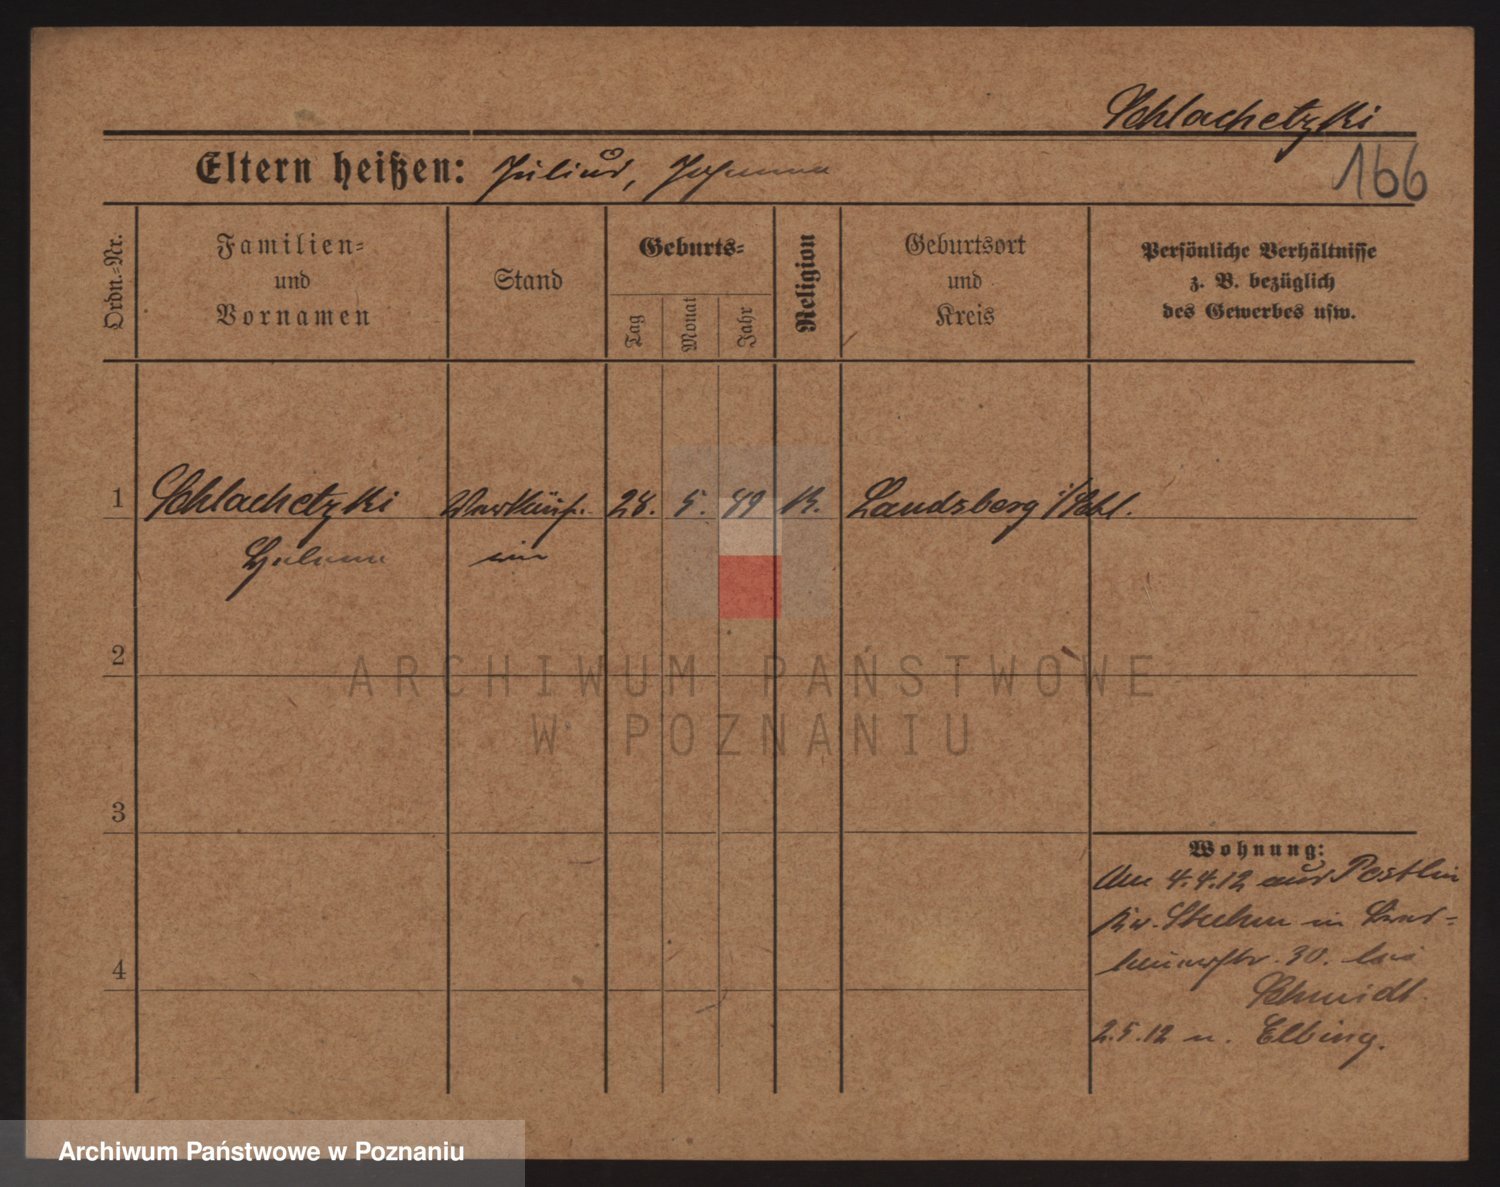 Schlachetzki
166
Eltern heißen: Julius, Johanna
Ordn.-Nr.
Familien-
und
Vornamen
Stand
Geburts-
Tag
Monat
Jahr
Religion
Geburtsort
und
Kreis
Persönliche Verhältnisse
z. B. bezüglich
des Gewerbes usw.
1
Schlachetzki Verkäuf. 28. 5. 89 K. Landsberg i/Schl.
Helene in
2
3
4
Wohnung:
Am 4.4.12 aus Pestlin
Kr. Stuhm in
30. bei
Schmidt.
2.5.12 n. Elbing.
ARCHIWUM PAŃSTWOWE
W POZNANIU
Archiwum Państwowe w Poznaniu